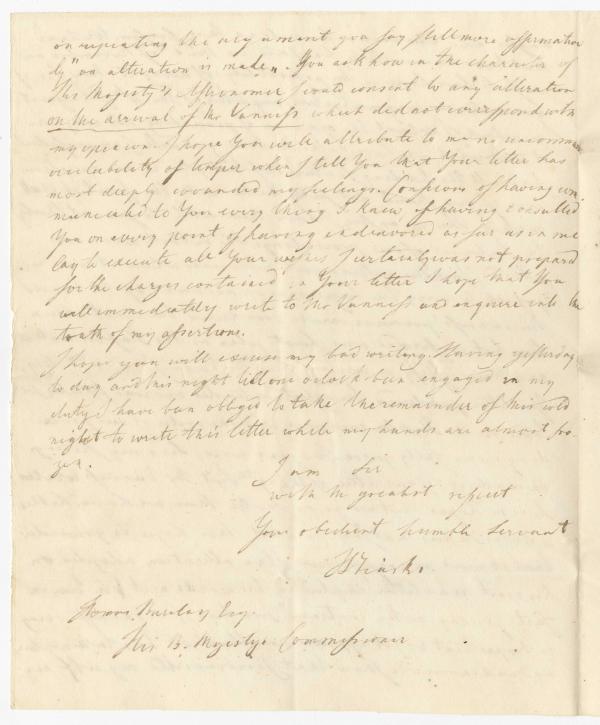 on repeating the argument you say still more affirmative
ly "an alteration is made". You ask how in the character of
His Majesty's Astronomer I could consent to any alteration
on the arrival of Mr Vanness which did not correspond with
my opinion. I hope You will attribute to me no uncommon
irritability of temper when I tell You that Your letter has
most deeply wounded my feelings. Conscious of having com
municated to You every thing I knew, of having consulted
You on every point of having endeavored as far as in me
lay to execute all Your wishes I certainly was not prepared
for the charges contained in Your letter I hope that You
will immediately write to Mr Vanness and enquire into the
truth of my assertions.
I hope you will excuse my bad writing. Having yesterday
to day and this night till one oclock been engaged in my
duty I have been obliged to take the remainder of this cold
night to write this letter while my hands are almost fro
zen.
I am Sir
with the greatest respect
Your obedient humble Servant
Tiarks
Thomas Barclay Esq.
His B. Majestys Commissioner